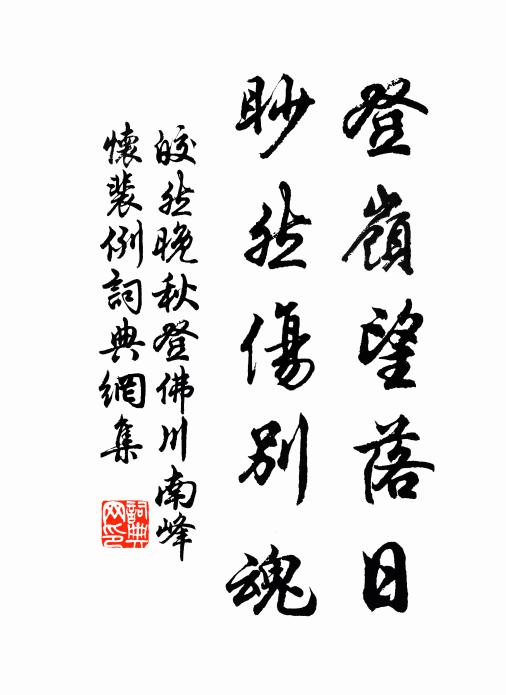 登嶺望落日
眇然傷別魂
皎然晚秋登佛川南峰
懷裴例詞典網集
詞典网印